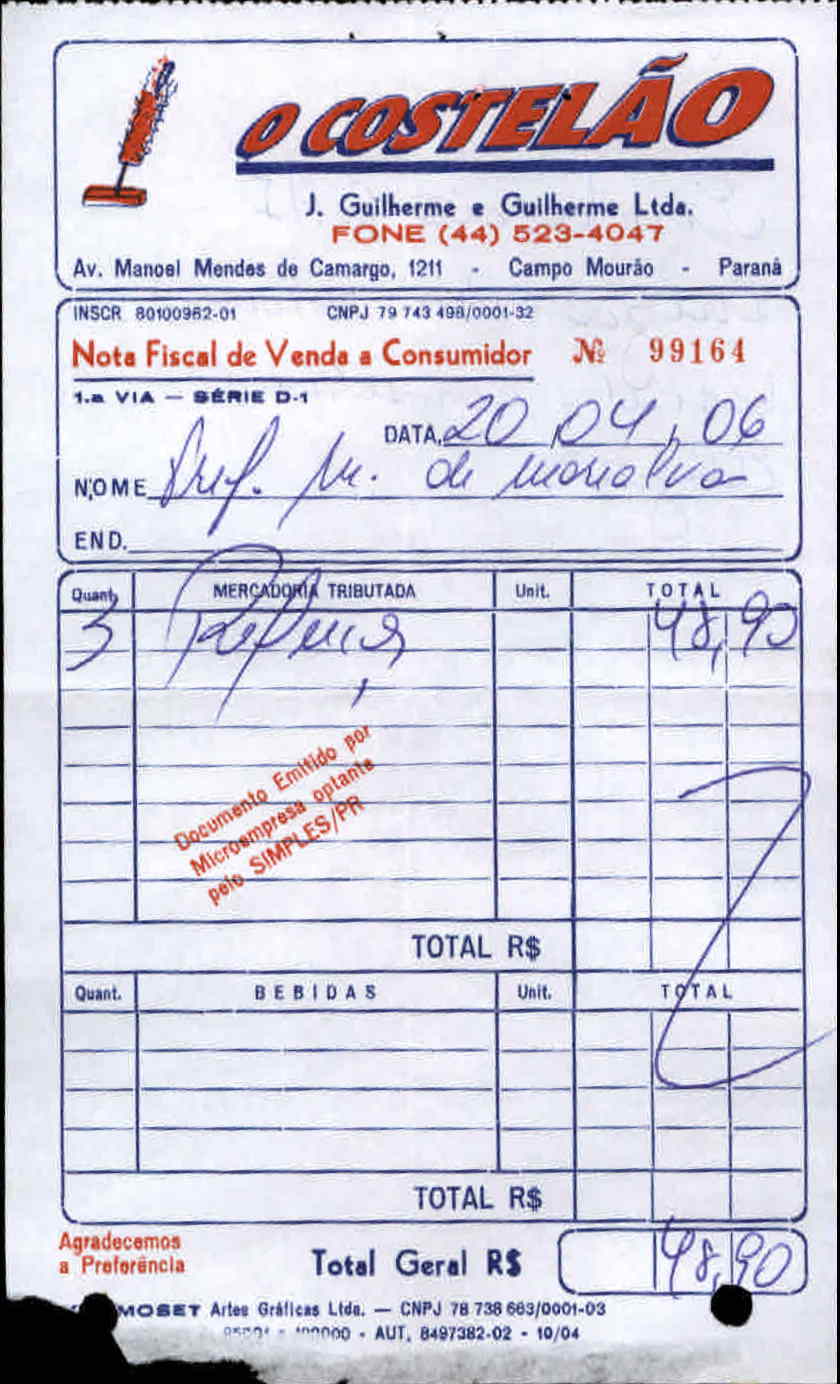 O COSTELÃO
J. Guilherme e Guilherme Ltda.
FONE (44) 523-4047
Av. Manoel Mendes de Camargo, 1211 - Campo Mourão - Paraná
INSCR 80100962-01 CNPJ 79 743 498/0001-32
Nota Fiscal de Venda a Consumidor Nº 99164
1.a VIA — SÉRIE D-1
DATA 20, 04, 06
NOME Pref. M. de Marialva
END.
Quant. MERCADORIA TRIBUTADA Unit. TOTAL
3 Refeições 48,90
Documento Emitido por
Microempresa optante
pelo SIMPLES/PR
TOTAL R$
Quant. BEBIDAS Unit. TOTAL
TOTAL R$
Agradecemos
a Preferência
Total Geral R$ 48,90
MOSET Artes Gráficas Ltda. — CNPJ 78 738 663/0001-03
- AUT. 8497382-02 - 10/04